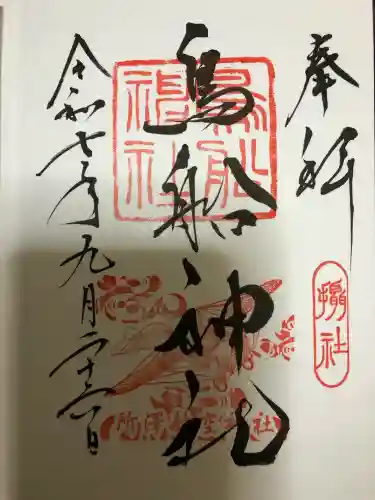 奉拝
攝社
鳥船神社
鳥船
神社
令和七年九月二十六日